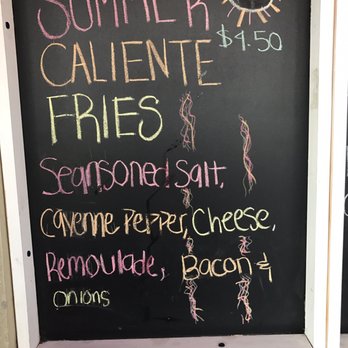 SUMMER
CALIENTE $4.50
FRIES
Seansoned Salt,
Cayenne Pepper, Cheese,
Remoulade, Bacon &
onions